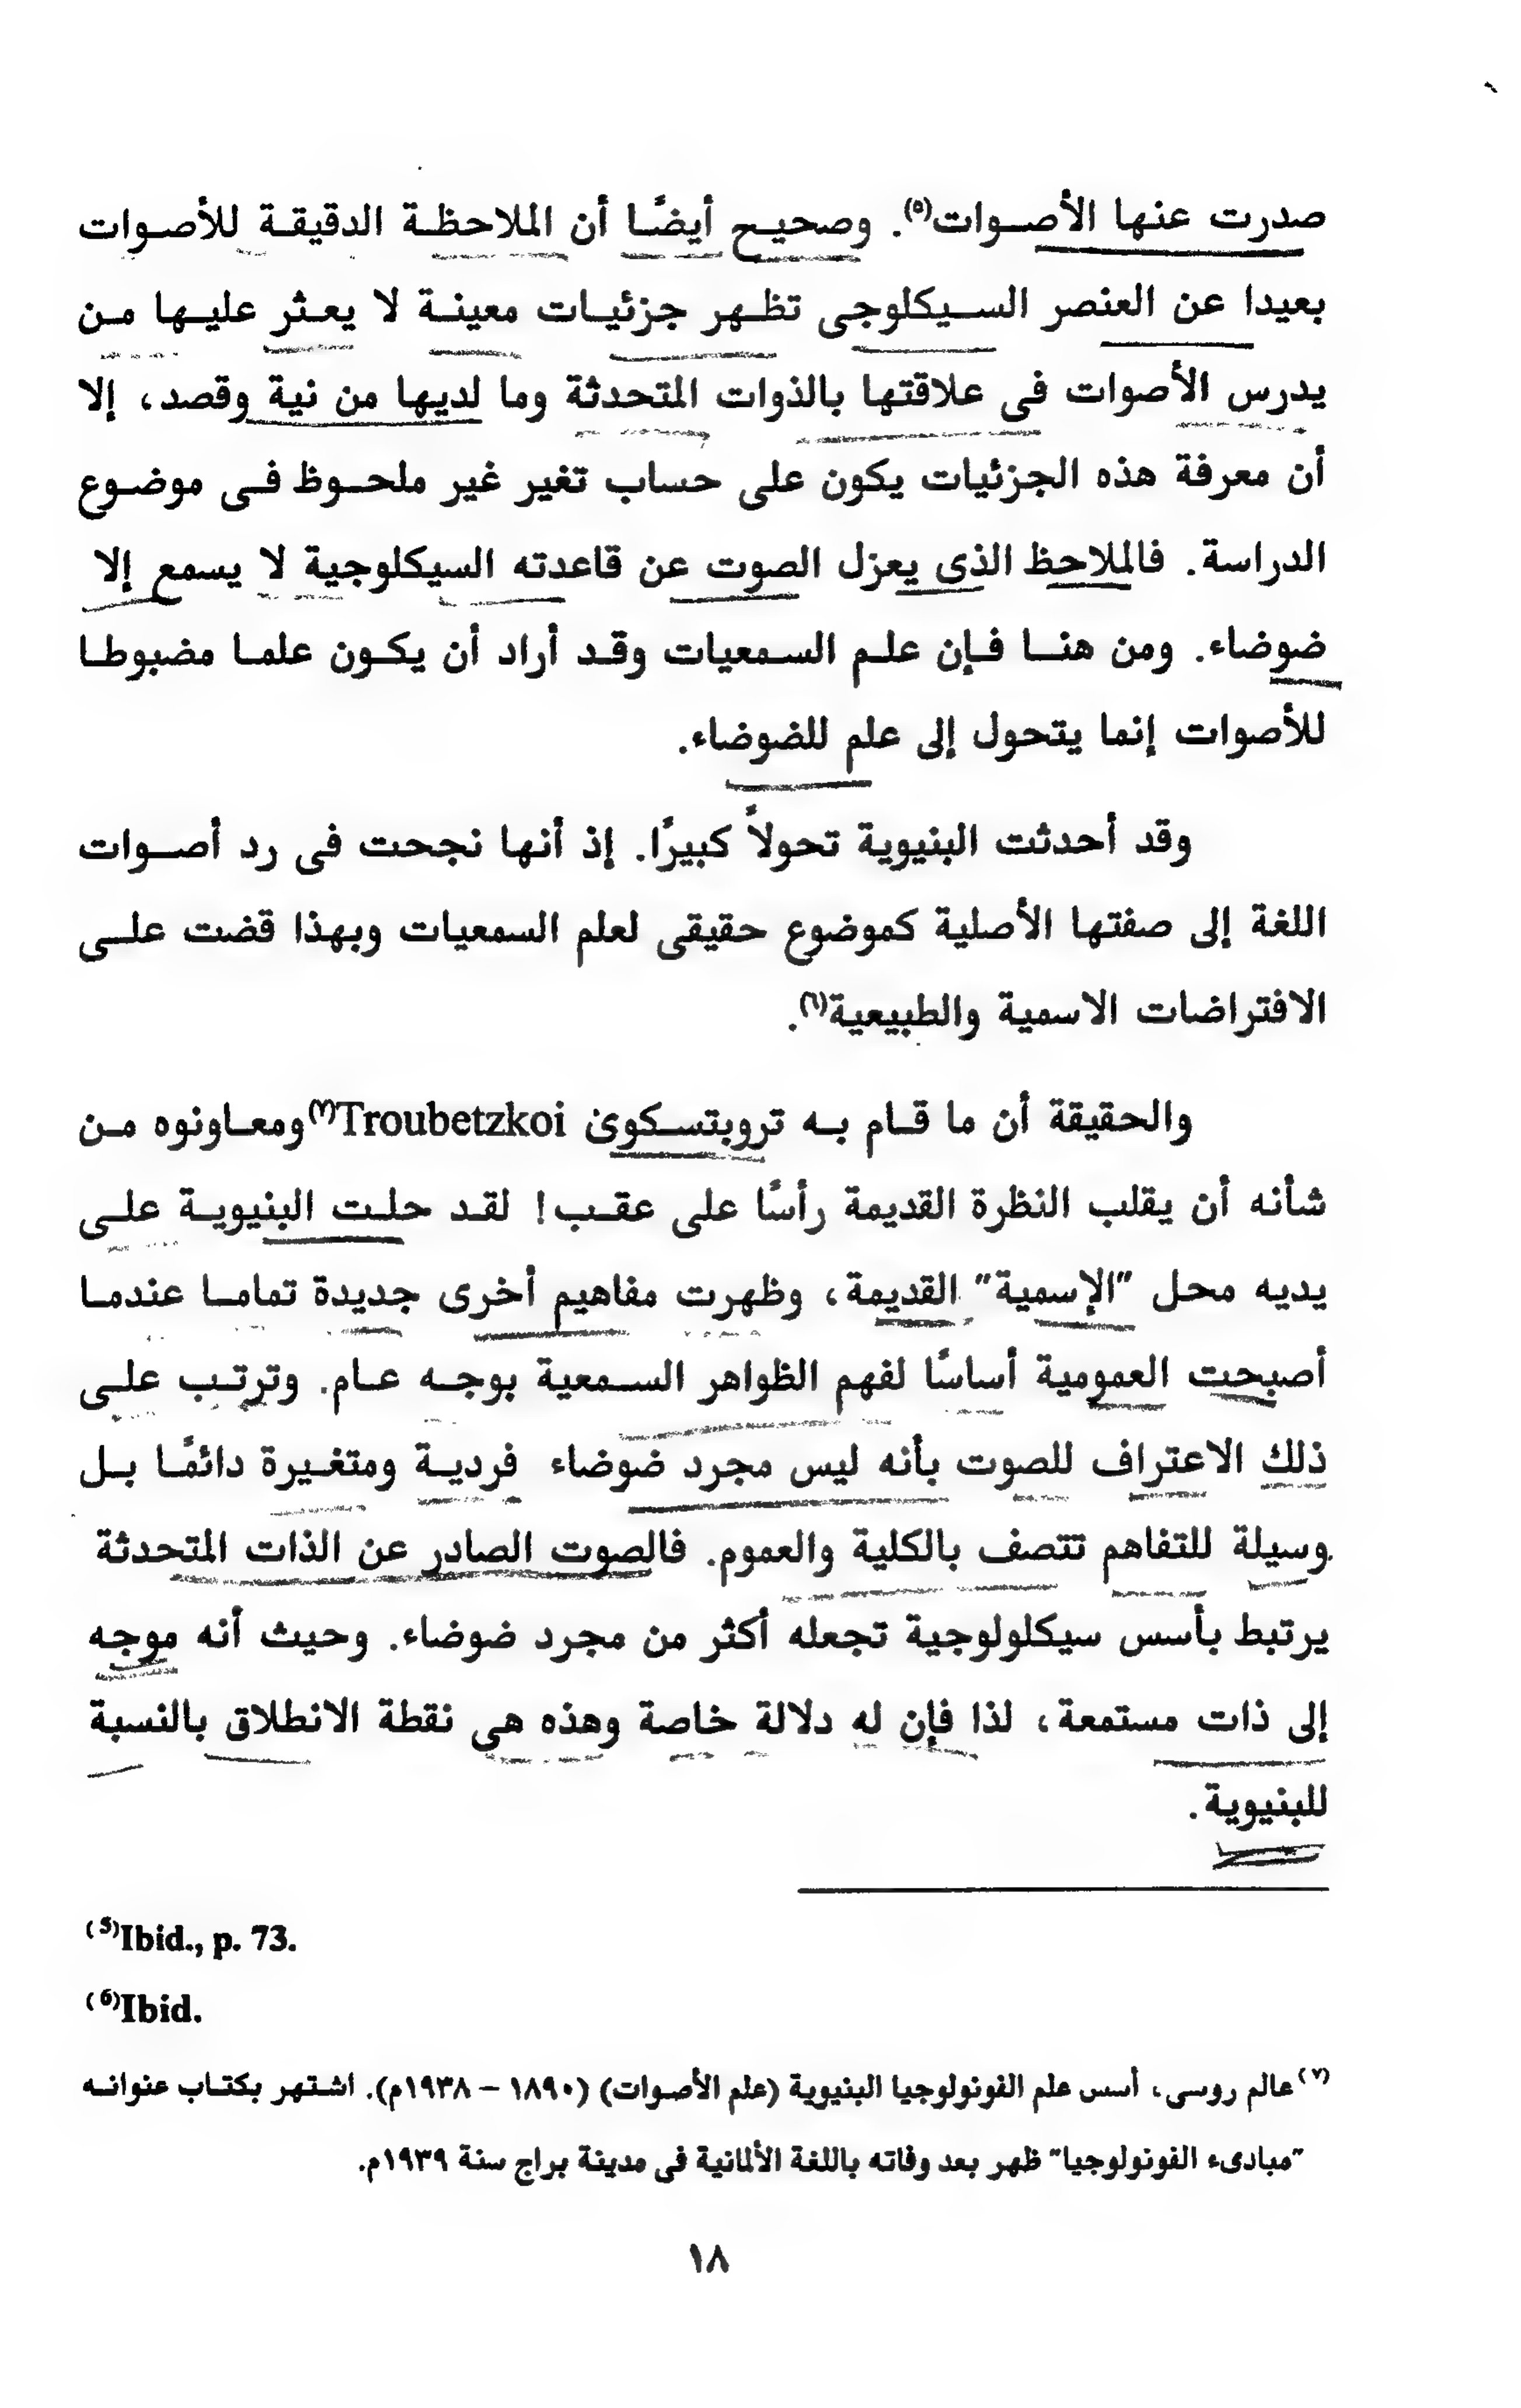 صدرت عنها الأصوات(٥). وصحيح أيضًا أن الملاحظة الدقيقة للأصوات
بعيدا عن العنصر السيكلوجى تظهر جزئيات معينة لا يعثر عليها من
يدرس الأصوات فى علاقتها بالذوات المتحدثة وما لديها من نية وقصد، إلا
أن معرفة هذه الجزئيات يكون على حساب تغير غير ملحوظ فى موضوع
الدراسة. فالملاحظ الذى يعزل الصوت عن قاعدته السيكلوجية لا يسمع إلا
ضوضاء. ومن هنا فإن علم السمعيات وقد أراد أن يكون علما مضبوطا
للأصوات إنما يتحول إلى علم للضوضاء.
وقد أحدثت البنيوية تحولاً كبيرًا. إذ أنها نجحت فى رد أصوات
اللغة إلى صفتها الأصلية كموضوع حقيقى لعلم السمعيات وبهذا قضت على
الافتراضات الاسمية والطبيعية(٦).
والحقيقة أن ما قام به تروبتسكوى Troubetzkoi(٧) ومعاونوه من
شأنه أن يقلب النظرة القديمة رأسًا على عقب! لقد حلت البنيوية على
يديه محل "الإسمية" القديمة، وظهرت مفاهيم أخرى جديدة تماما عندما
أصبحت العمومية أساسًا لفهم الظواهر السمعية بوجه عام. وترتب على
ذلك الاعتراف للصوت بأنه ليس مجرد ضوضاء فردية ومتغيرة دائمًا بل
وسيلة للتفاهم تتصف بالكلية والعموم. فالصوت الصادر عن الذات المتحدثة
يرتبط بأسس سيكلولوجية تجعله أكثر من مجرد ضوضاء. وحيث أنه موجه
إلى ذات مستمعة، لذا فإن له دلالة خاصة وهذه هى نقطة الانطلاق بالنسبة
للبنيوية.
(5)Ibid., p. 73.
(6)Ibid.
(٧)عالم روسى، أسس علم الفونولوجيا البنيوية (علم الأصوات) (١٨٩٠ – ١٩٣٨م). اشتهر بكتاب عنوانه
"مبادىء الفونولوجيا" ظهر بعد وفاته باللغة الألمانية فى مدينة براج سنة ١٩٣٩م.
١٨